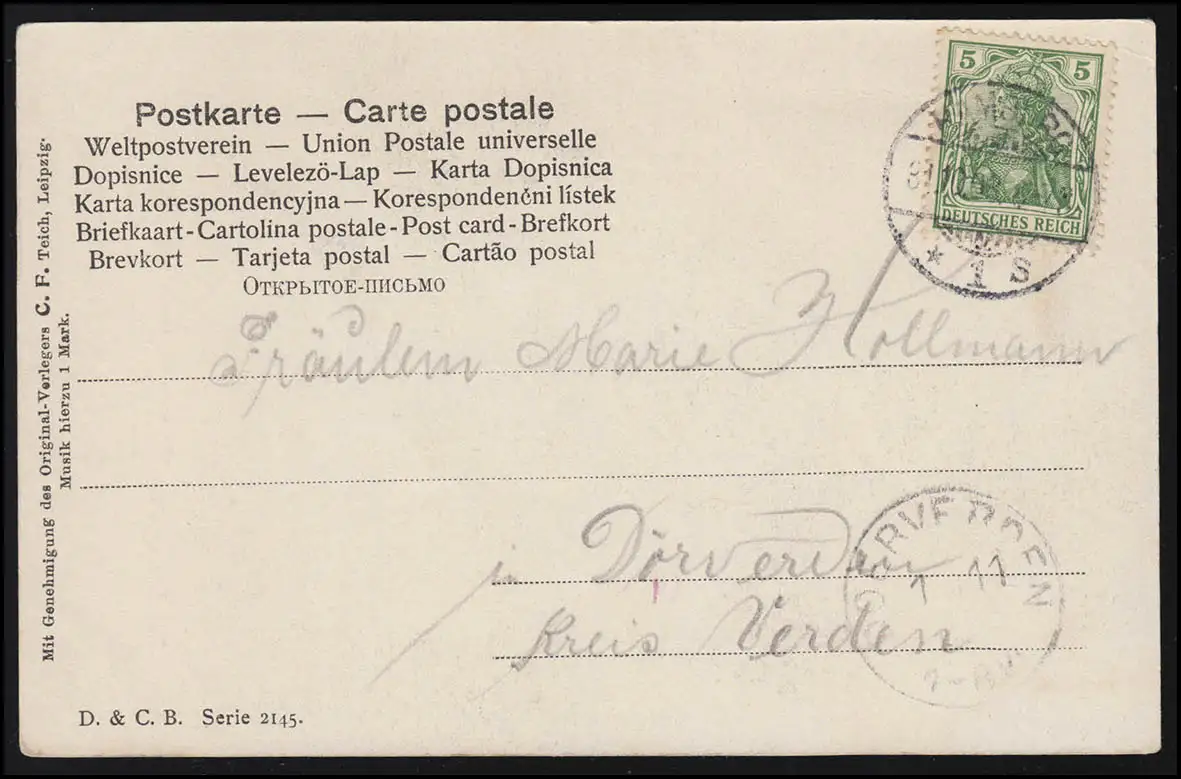 Postkarte — Carte postale
Weltpostverein — Union Postale universelle
Dopisnice — Levelezö-Lap — Karta Dopisnica
Karta korespondencyjna — Korespondenčni lístek
Briefkaart - Cartolina postale - Post card - Brefkort
Brevkort — Tarjeta postal — Cartão postal
Открытое-письмо
5 5
DEUTSCHES REICH
* 1 S
Fräulein Marie Hollmann
in Dörverden
Kreis Verden
DÖRVERDEN
1 11
Mit Genehmigung des Original-Verlegers C. F. Teich, Leipzig.
Musik hierzu 1 Mark.
D. & C. B. Serie 2145.